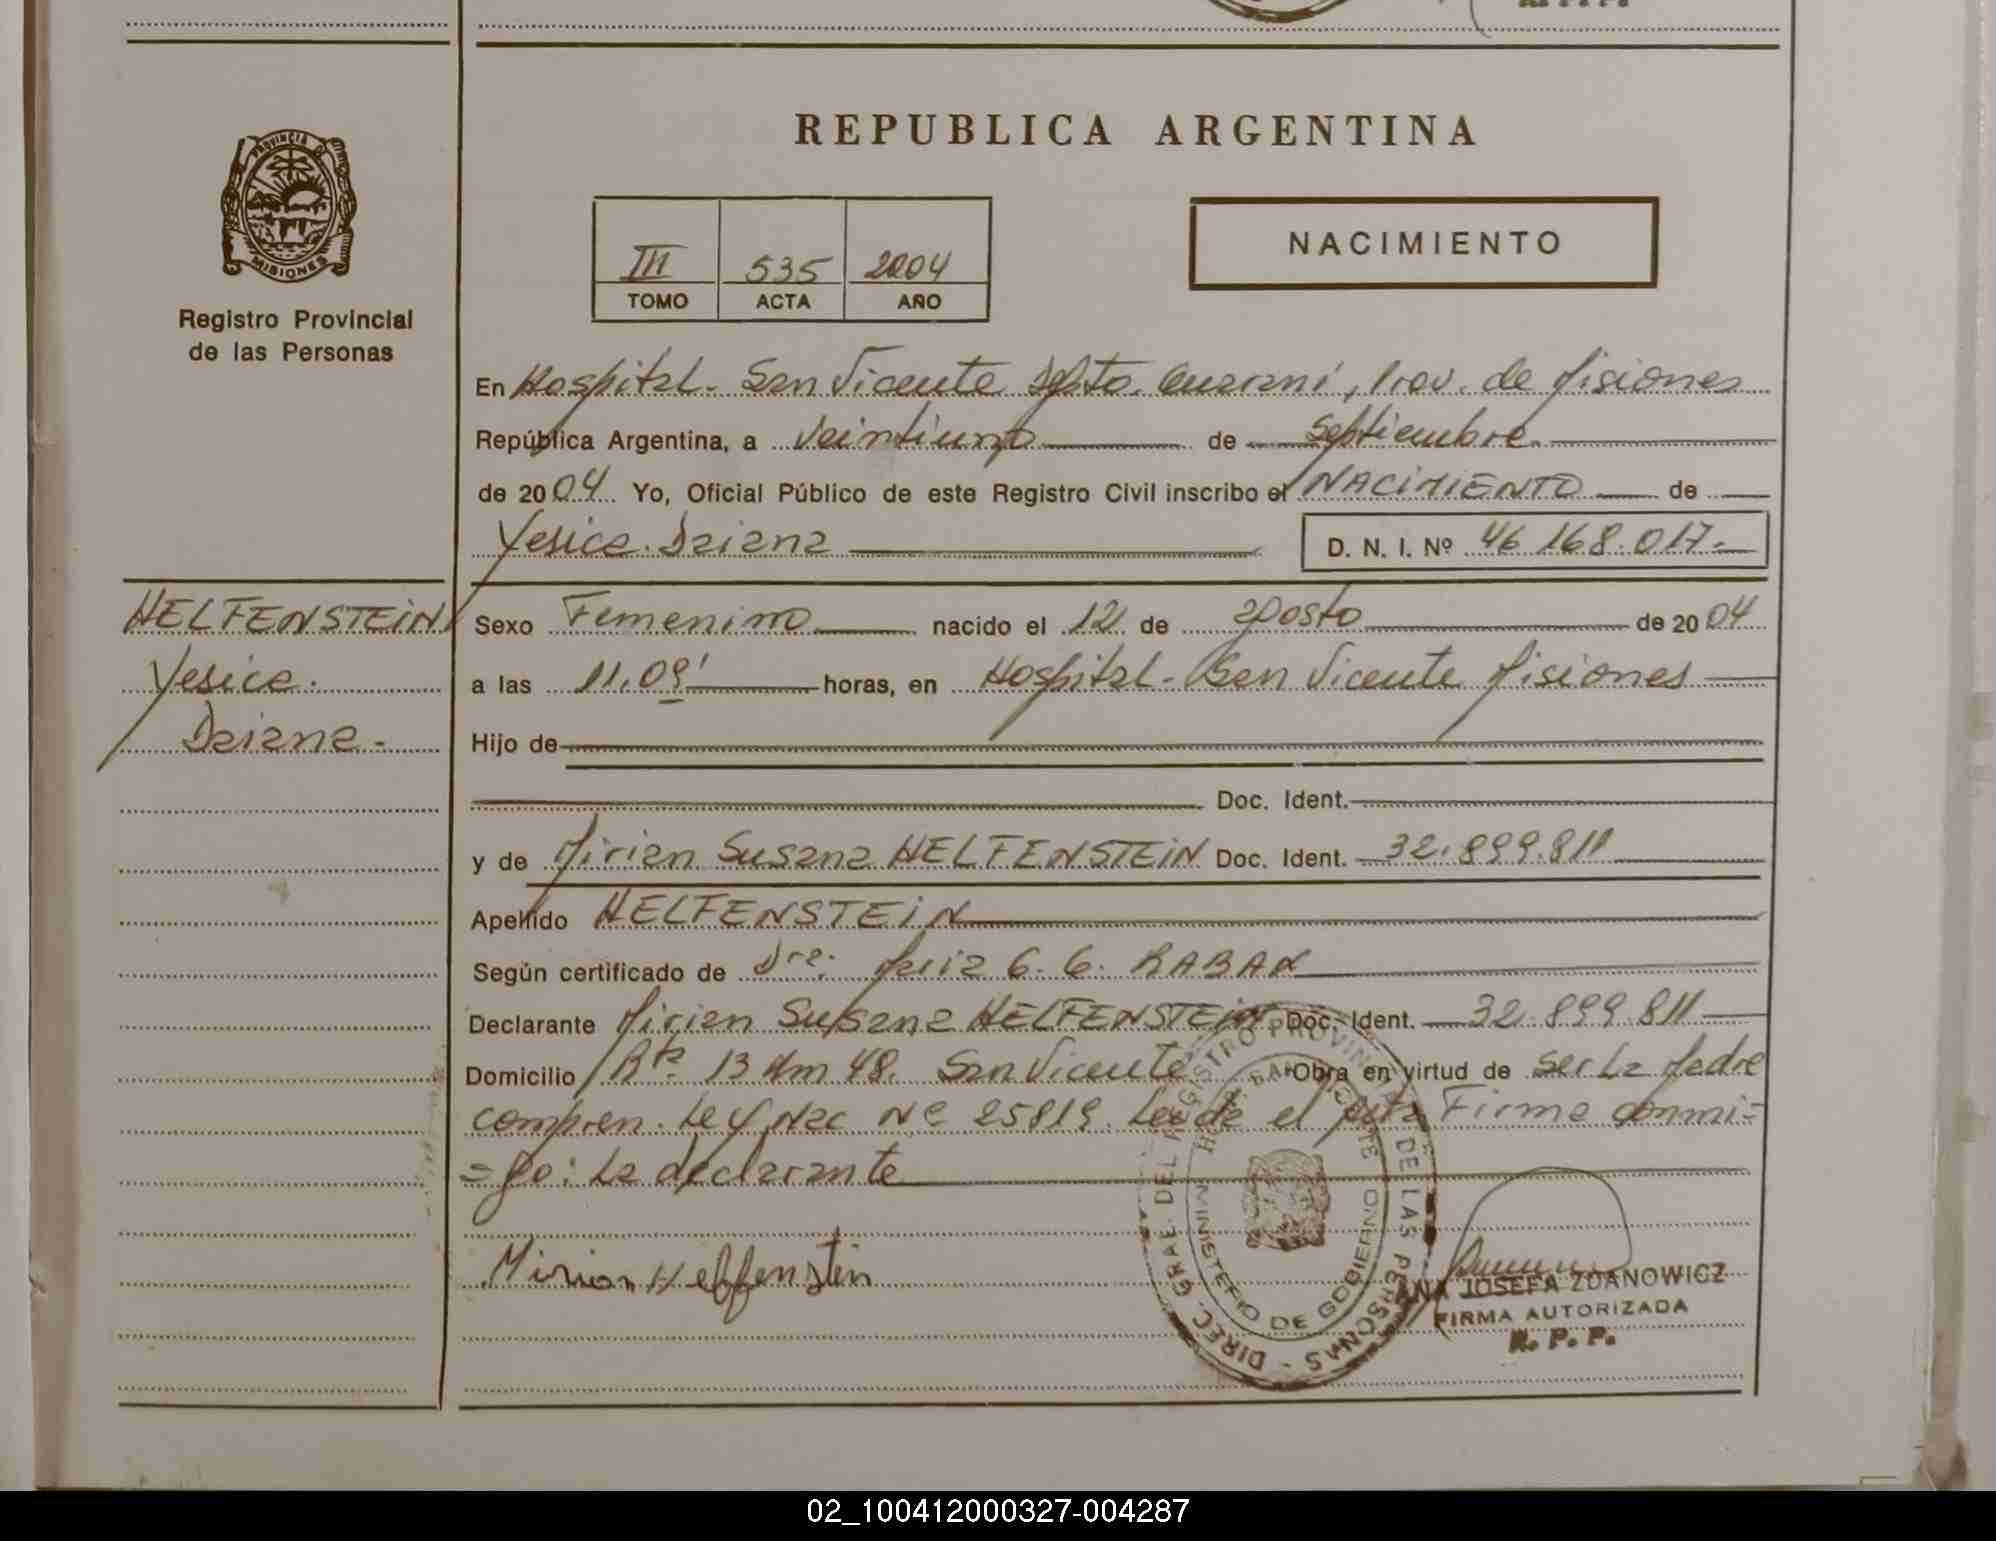 REPUBLICA ARGENTINA
PROVINCIA D
MISIONES
Registro Provincial
de las Personas
III 535 2004
TOMO ACTA AÑO
NACIMIENTO
En Hospital - San Vicente Dpto. Guarani, Prov. de Misiones
República Argentina, a veintiuno de septiembre
de 2004 Yo, Oficial Público de este Registro Civil inscribo el NACIMIENTO de
Yesica Daiana D. N. I. Nº 46 168.017.-
HELFENSTEIN
Yesica.
Daiana.-
Sexo Femenino nacido el 12 de agosto de 2004
a las 11,09' horas, en Hospital - San Vicente Misiones
Hijo de
Doc. Ident.
y de Mirian Susana HELFENSTEIN Doc. Ident. 32.899.811
Apellido HELFENSTEIN
Según certificado de Dra. Maria G. G. RABAN
Declarante Mirian Susana HELFENSTEIN Doc. Ident. 32.899.811
Domicilio Rta 13 Km 48. San Vicente Obra en virtud de ser la Madre
compren. Ley Nac Nº 25819. Leyda el acta Firma conmi=
=go: La declarante
Mirian Helffenstein
DIREC. GRAL. DEL REGISTRO PROVINCIAL DE LAS PERSONAS
MINISTERIO DE GOBIERNO
ANA JOSEFA ZDANOWICZ
FIRMA AUTORIZADA
R. P. P.
02_100412000327-004287